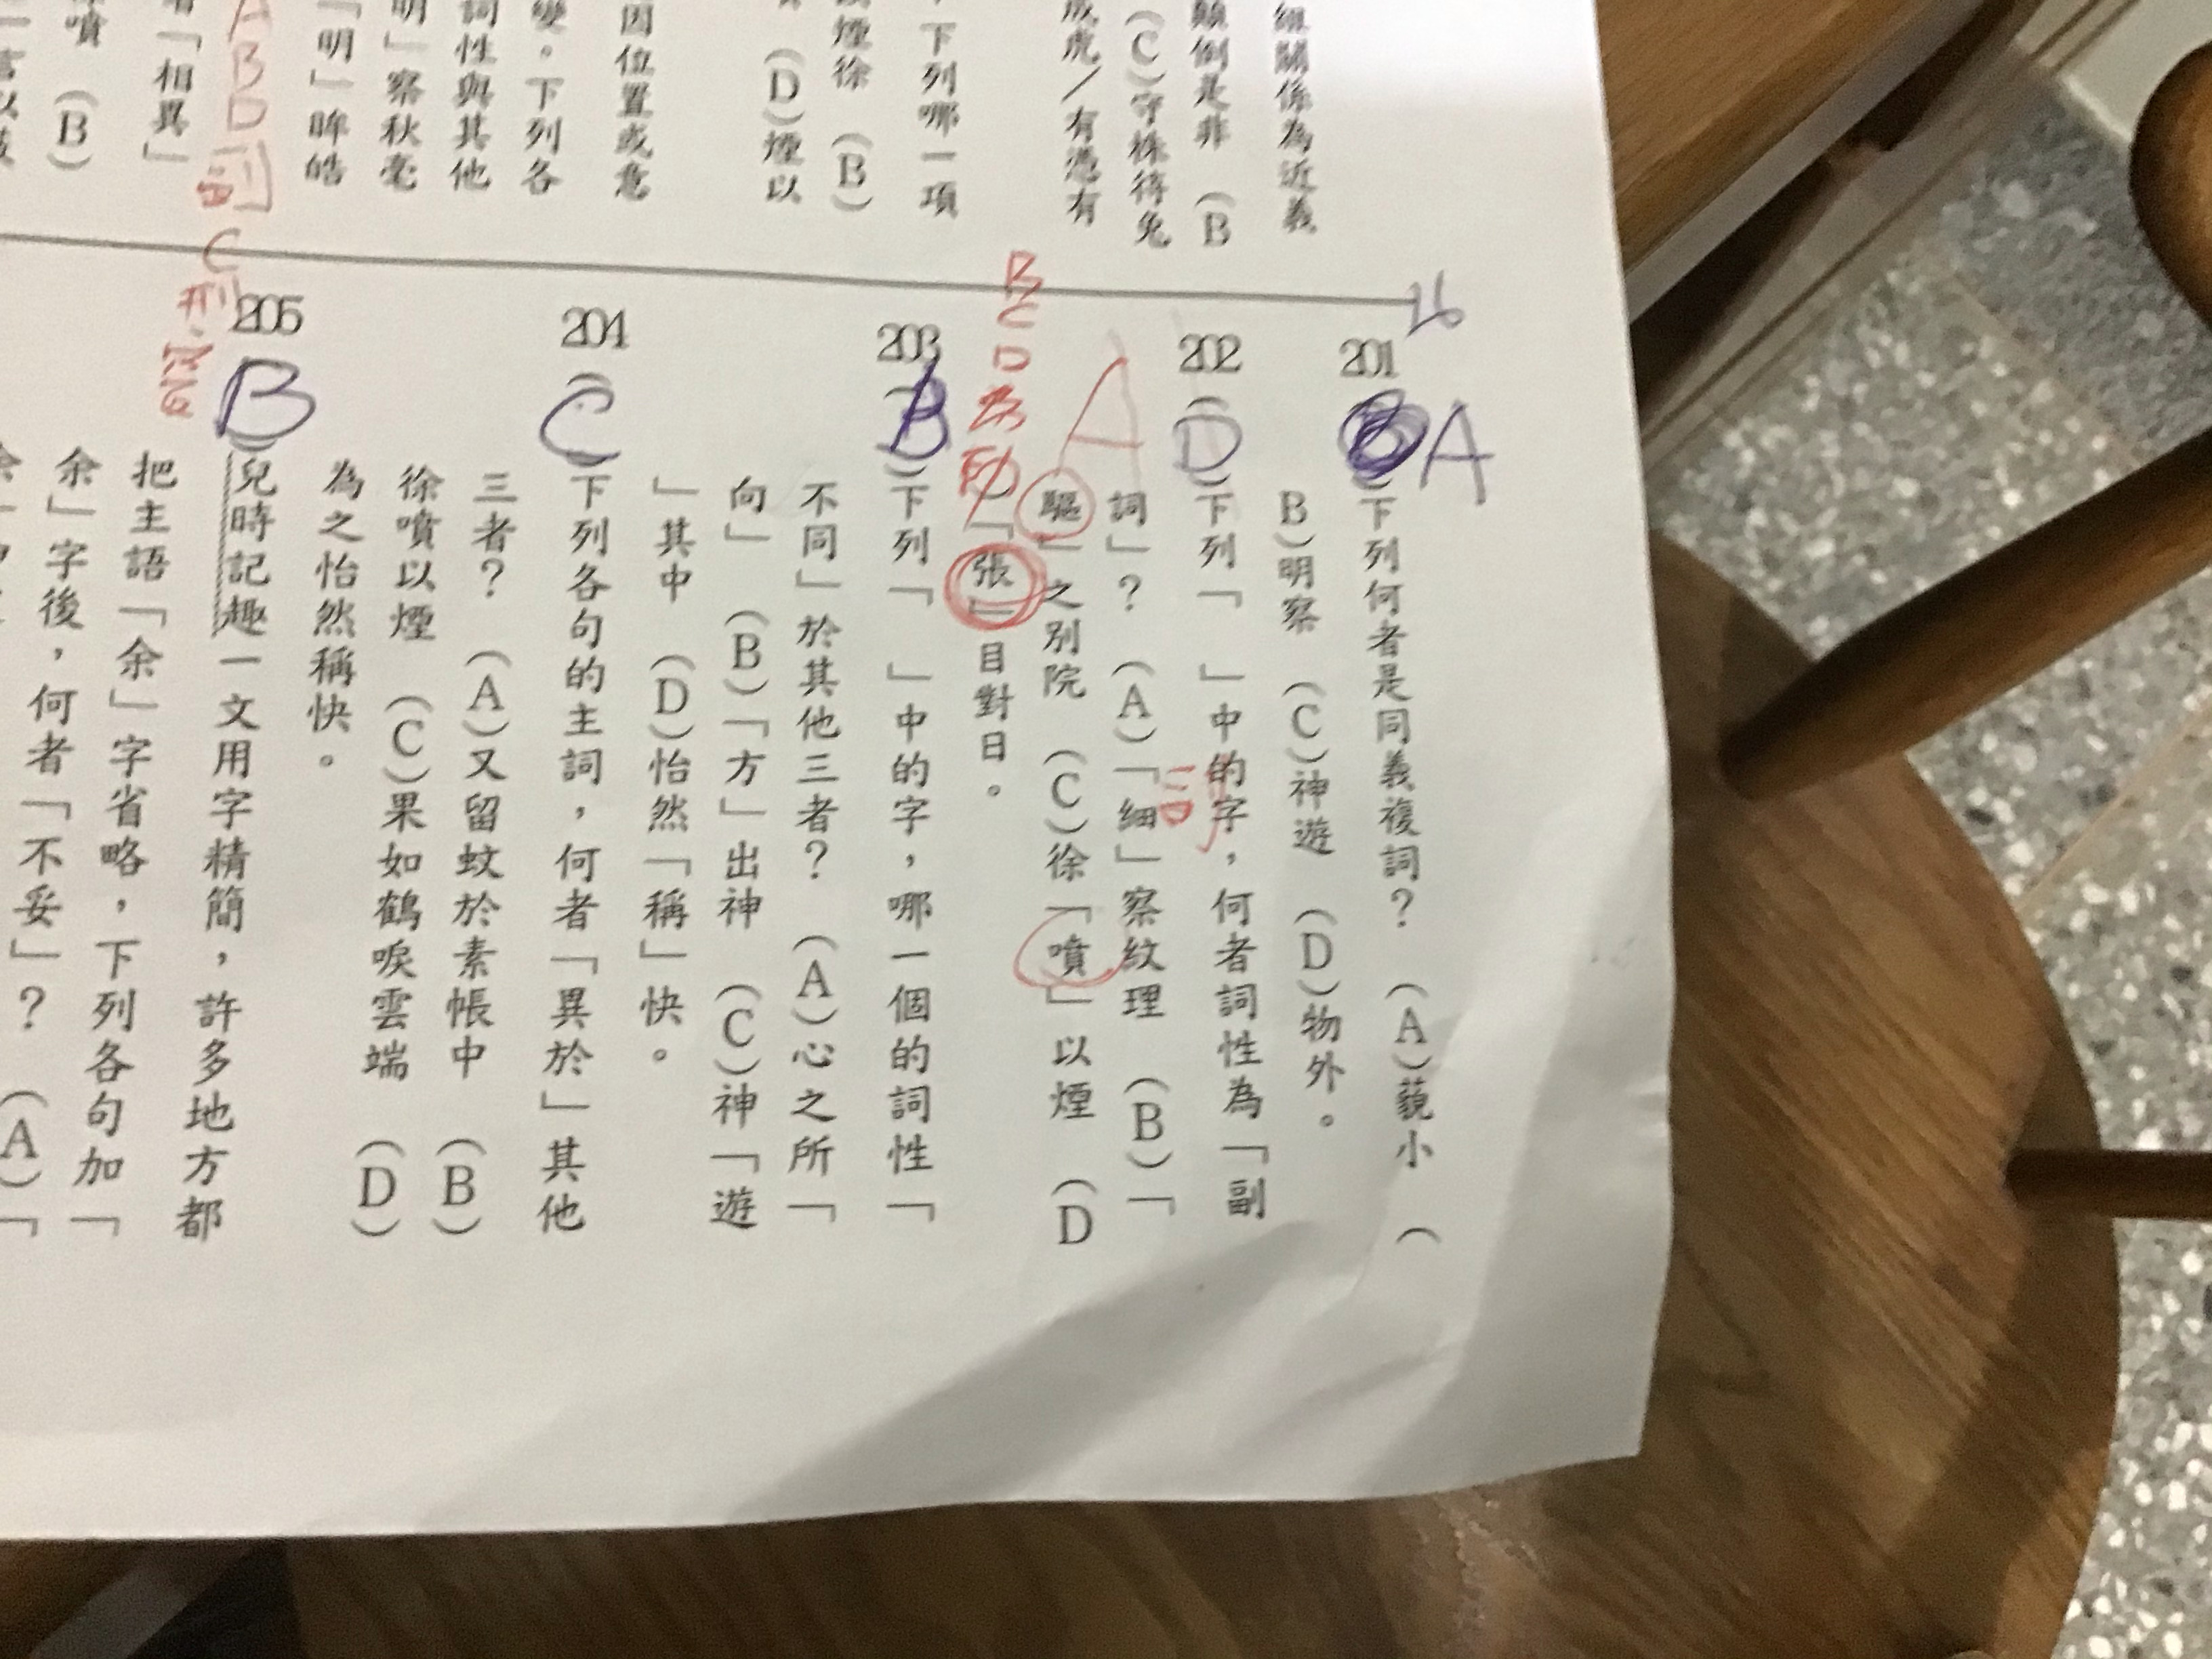 細關係為近義
顛倒是非 (B
(C)守株待兔
成虎/有憑有
，下列哪一項
煙徐 (B)
(D)煙以
因位置或意
變。下列各
詞性與其他
明」察秋毫
「明」眸皓
ABD副
C形
「相異」
噴 (B)
26
201
A
下列何者是同義複詞？ (A)藐小 (
B)明察 (C)神遊 (D)物外。
202
D
A
下列「 」中的字，何者詞性為「副
詞」？ (A)「細」察紋理 (B)「
驅」之別院 (C)徐「噴」以煙 (D
)「張」目對日。
BCD為動
詞
203
B
下列「 」中的字，哪一個的詞性「
不同」於其他三者？ (A)心之所「
向」 (B)「方」出神 (C)神「遊
」其中 (D)怡然「稱」快。
204
C
下列各句的主詞，何者「異於」其他
三者？ (A)又留蚊於素帳中 (B)
徐噴以煙 (C)果如鶴唳雲端 (D)
為之怡然稱快。
205
B
兒時記趣一文用字精簡，許多地方都
把主語「余」字省略，下列各句加「
余」字後，何者「不妥」？ (A)「